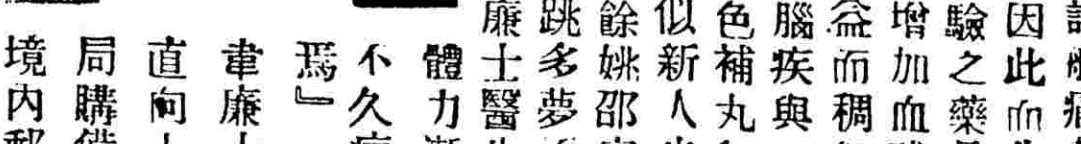 因此血
驗之藥
增加血
益而稠
腦疾與
色補丸
似新人
餘姚邵
跳多夢
廉士醫
體力漸
不久
焉』
韋廉士
直向
局購
境內郵